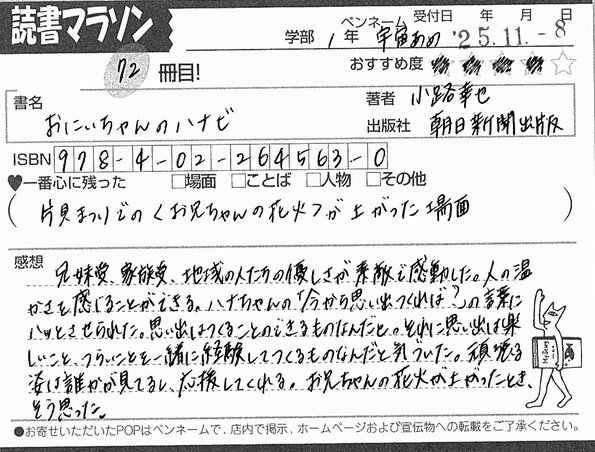 読書マラソン
学部 1年
ペンネーム 宇宙あめ
受付日 年 月 日
'25.11.-8
72 冊目!
おすすめ度
書名 おにいちゃんのハナビ
著者 小路幸也
出版社 朝日新聞出版
ISBN 978-4-02-264563-0
♥一番心に残った □場面 □ことば □人物 □その他
(片貝まつりでの<お兄ちゃんの花火>が上がった場面)
感想
兄妹愛、家族愛、地域の人たちの優しさが素敵で感動した。人の温
かさを感じることができる。ハナちゃんの「今から思い出つくれば?」の言葉に
ハッとさせられた。思い出はつくることのできるものなんだと。それに思い出は楽
しいこと、つらいことを一緒に経験してつくるものなんだと気づいた。頑張る
姿は誰かが見てるし、応援してくれる。お兄ちゃんの花火が上がったとき、
そう思った。
●お寄せいただいたPOPはペンネームで、店内で掲示、ホームページおよび宣伝物への転載をご了承ください。